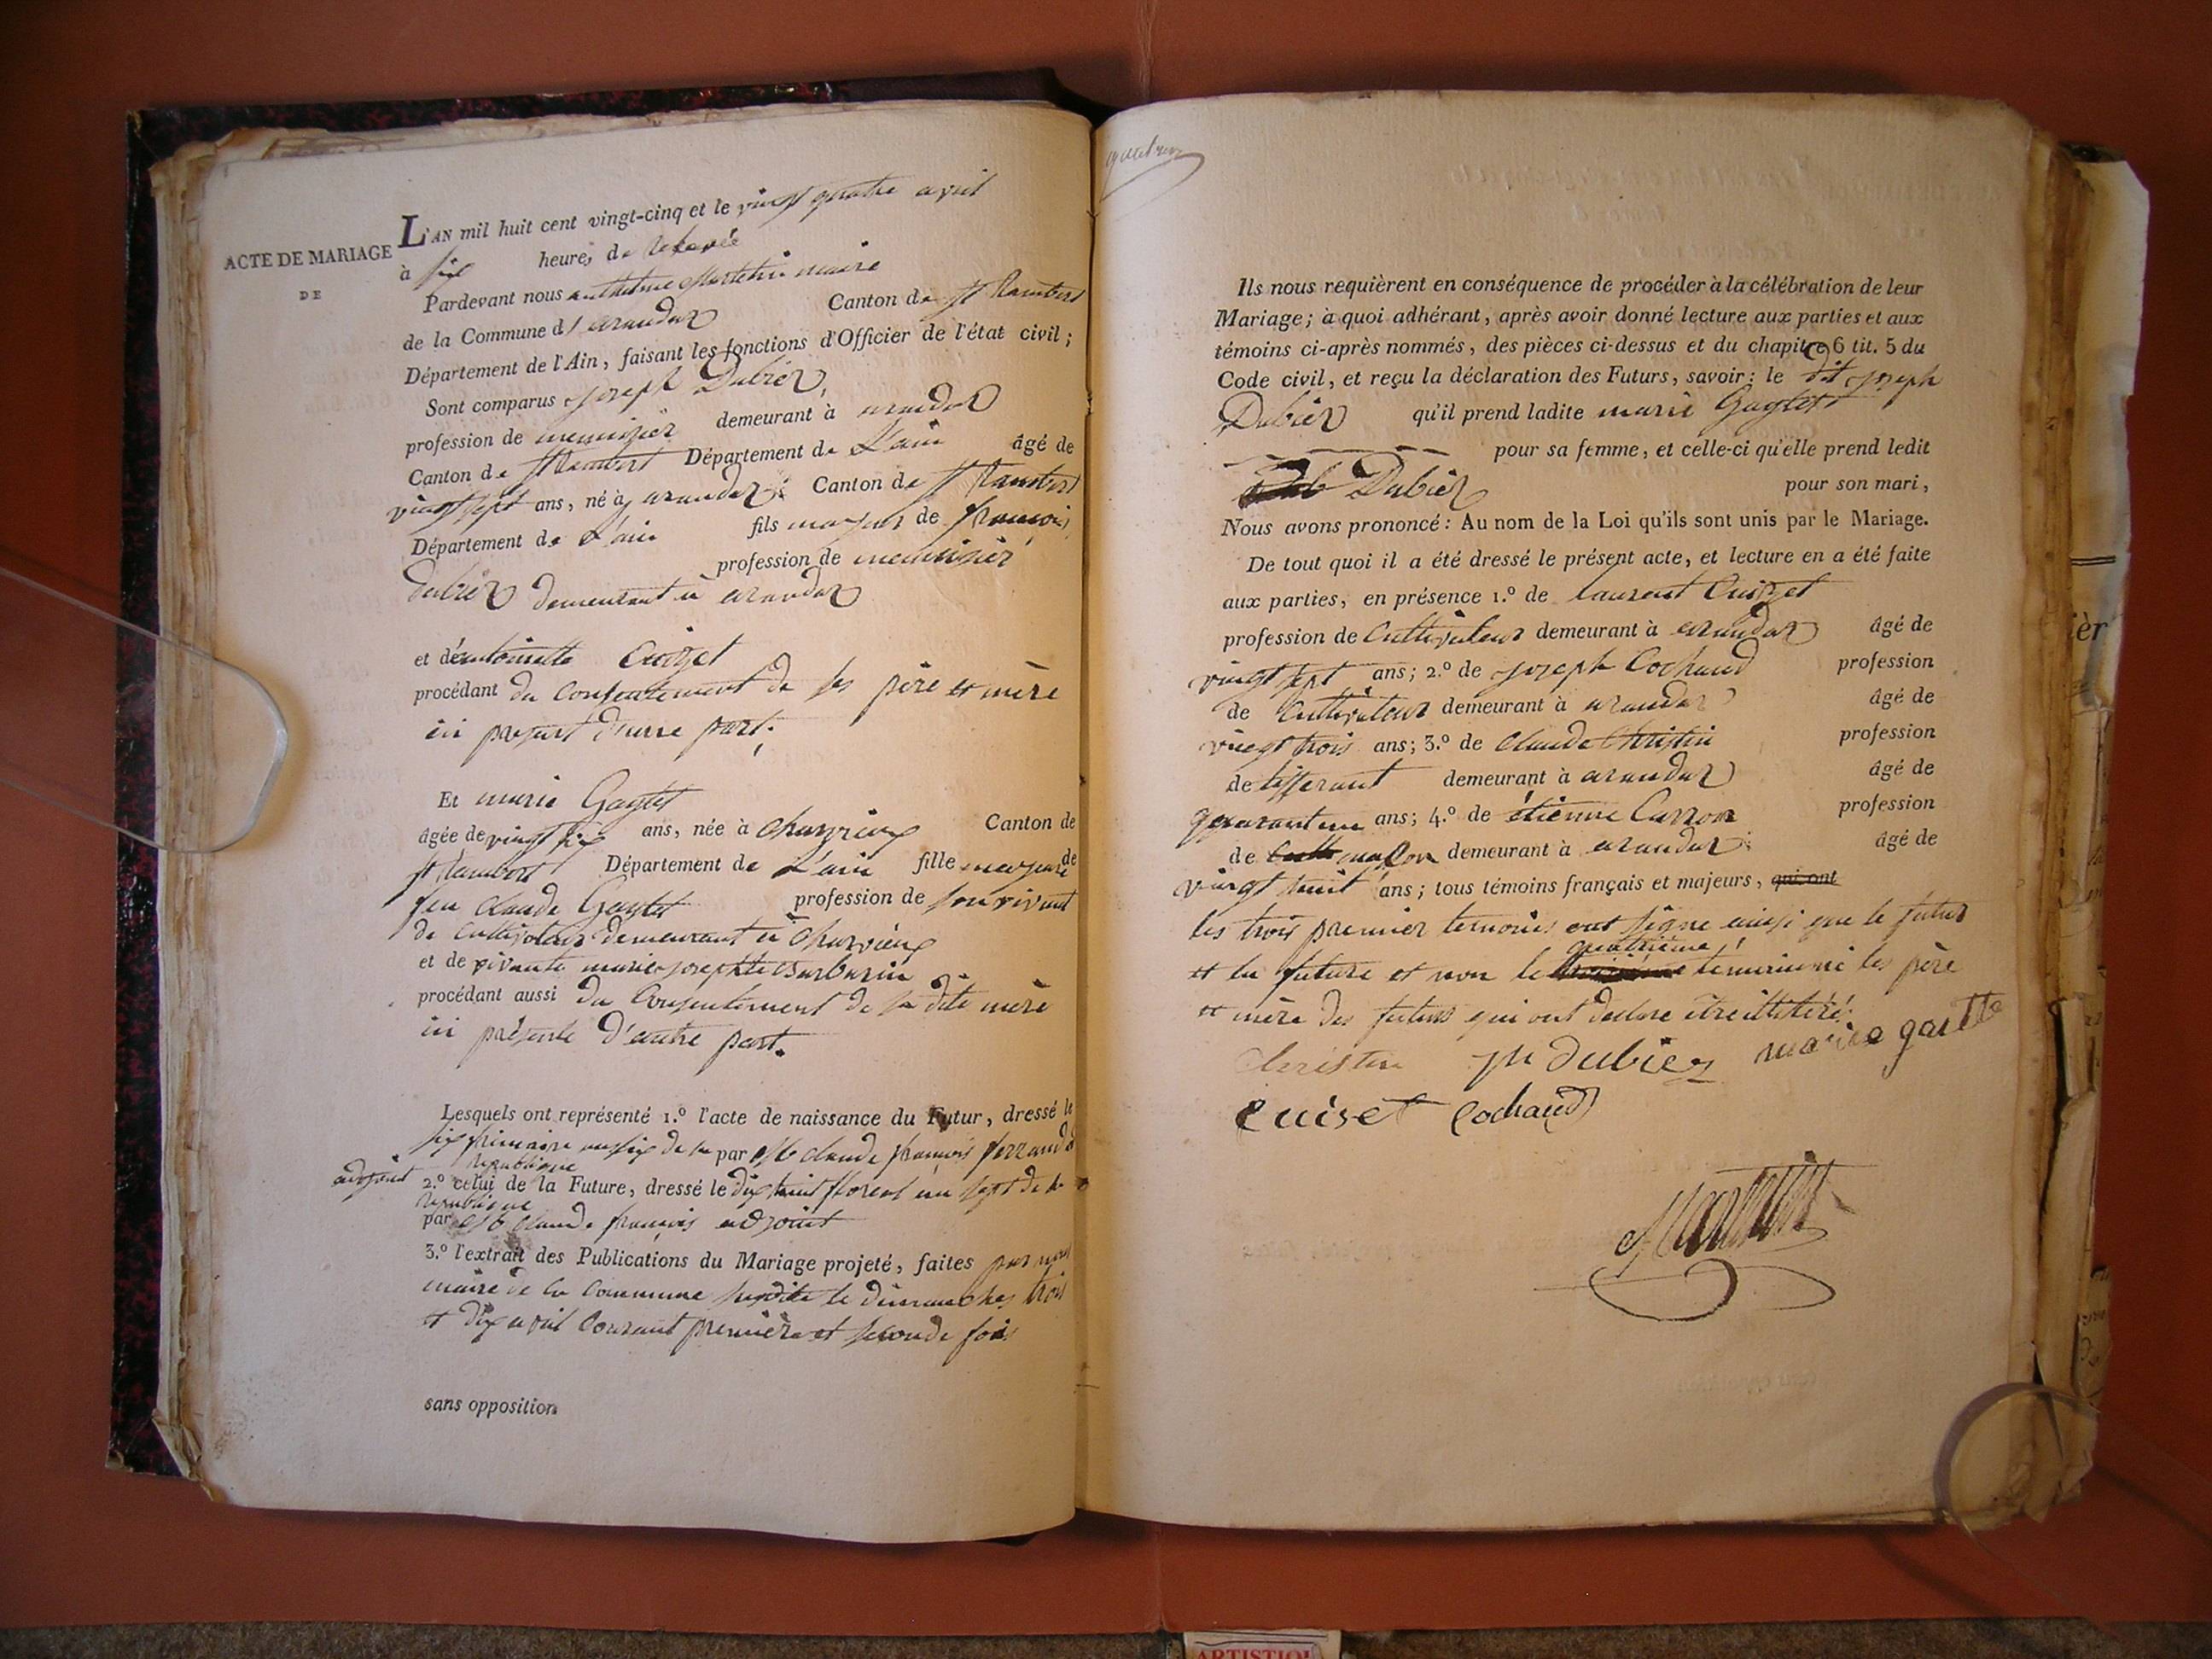 ACTE DE MARIAGE
DE
L'AN mil huit cent vingt-cinq et le vingt quatre avril
à six heures de relevée
Pardevant nous anthelme Martin maire
de la Commune d'arandaz Canton de st Rambert
Département de l'Ain, faisant les fonctions d'Officier de l'état civil ;
Sont comparus joseph Dubiez,
profession de menuisier demeurant à arandaz
Canton de st Rambert Département de L'ain âgé de
vingt sept ans, né à arandaz Canton de st Rambert
Département de L'ain fils majeur de françois
profession de menuisier
dubiez demeurant à arandaz
et d'antoinette Cuizet
procédant du Consentement de ses père et mère
ici présent d'une part.
Et marie Gaytet
âgée de vingt six ans, née à Canton de
st Rambert Département de L'ain fille majeure de
feu claude Gaytet profession de son vivant
de Cultivateur demeurant à
et de vivante marie josephte Barbarin
procédant aussi du Consentement de sa dite mère
ici présente d'autre part.
Lesquels ont représenté 1.º l'acte de naissance du Futur, dressé le
six frimaire an six de la par Mr claude françois ferrand
republique
adjoint 2.º celui de la Future, dressé le dix huit floreal an sept de la
republique
par Mr Claude françois adjoint
3.º l'extrait des Publications du Mariage projeté, faites par nous
maire de la Commune susdite le dimanches trois
et dix avril Courant première et seconde fois
sans opposition
Ils nous requièrent en conséquence de procéder à la célébration de leur
Mariage ; à quoi adhérant, après avoir donné lecture aux parties et aux
témoins ci-après nommés, des pièces ci-dessus et du chapitre 6 tit. 5 du
Code civil, et reçu la déclaration des Futurs, savoir : le dit joseph
Dubiez qu'il prend ladite marie Gaytet
pour sa femme, et celle-ci qu'elle prend ledit
Dubiez pour son mari,
Nous avons prononcé : Au nom de la Loi qu'ils sont unis par le Mariage.
De tout quoi il a été dressé le présent acte, et lecture en a été faite
aux parties, en présence 1.º de laurent Cuizet
profession de Cultivateur demeurant à arandaz âgé de
vingt sept ans ; 2.º de joseph Cochaud profession
de Cultivateur demeurant à arandaz âgé de
vingt trois ans ; 3.º de claude Christin profession
de tisserant demeurant à arandaz âgé de
quarant un ans ; 4.º de étienne Carron profession
de maçon demeurant à arandaz âgé de
vingt huit ans ; tous témoins français et majeurs, qui ont
les trois premier temoins ont signe ainsi que le futur
quatrième
et la future et non le temoin ni les père
et mère des futurs qui ont declare etre illitéré.
christin jh dubiez marie gaitte
cuiset Cochaud
Martin
ARTISTIQU